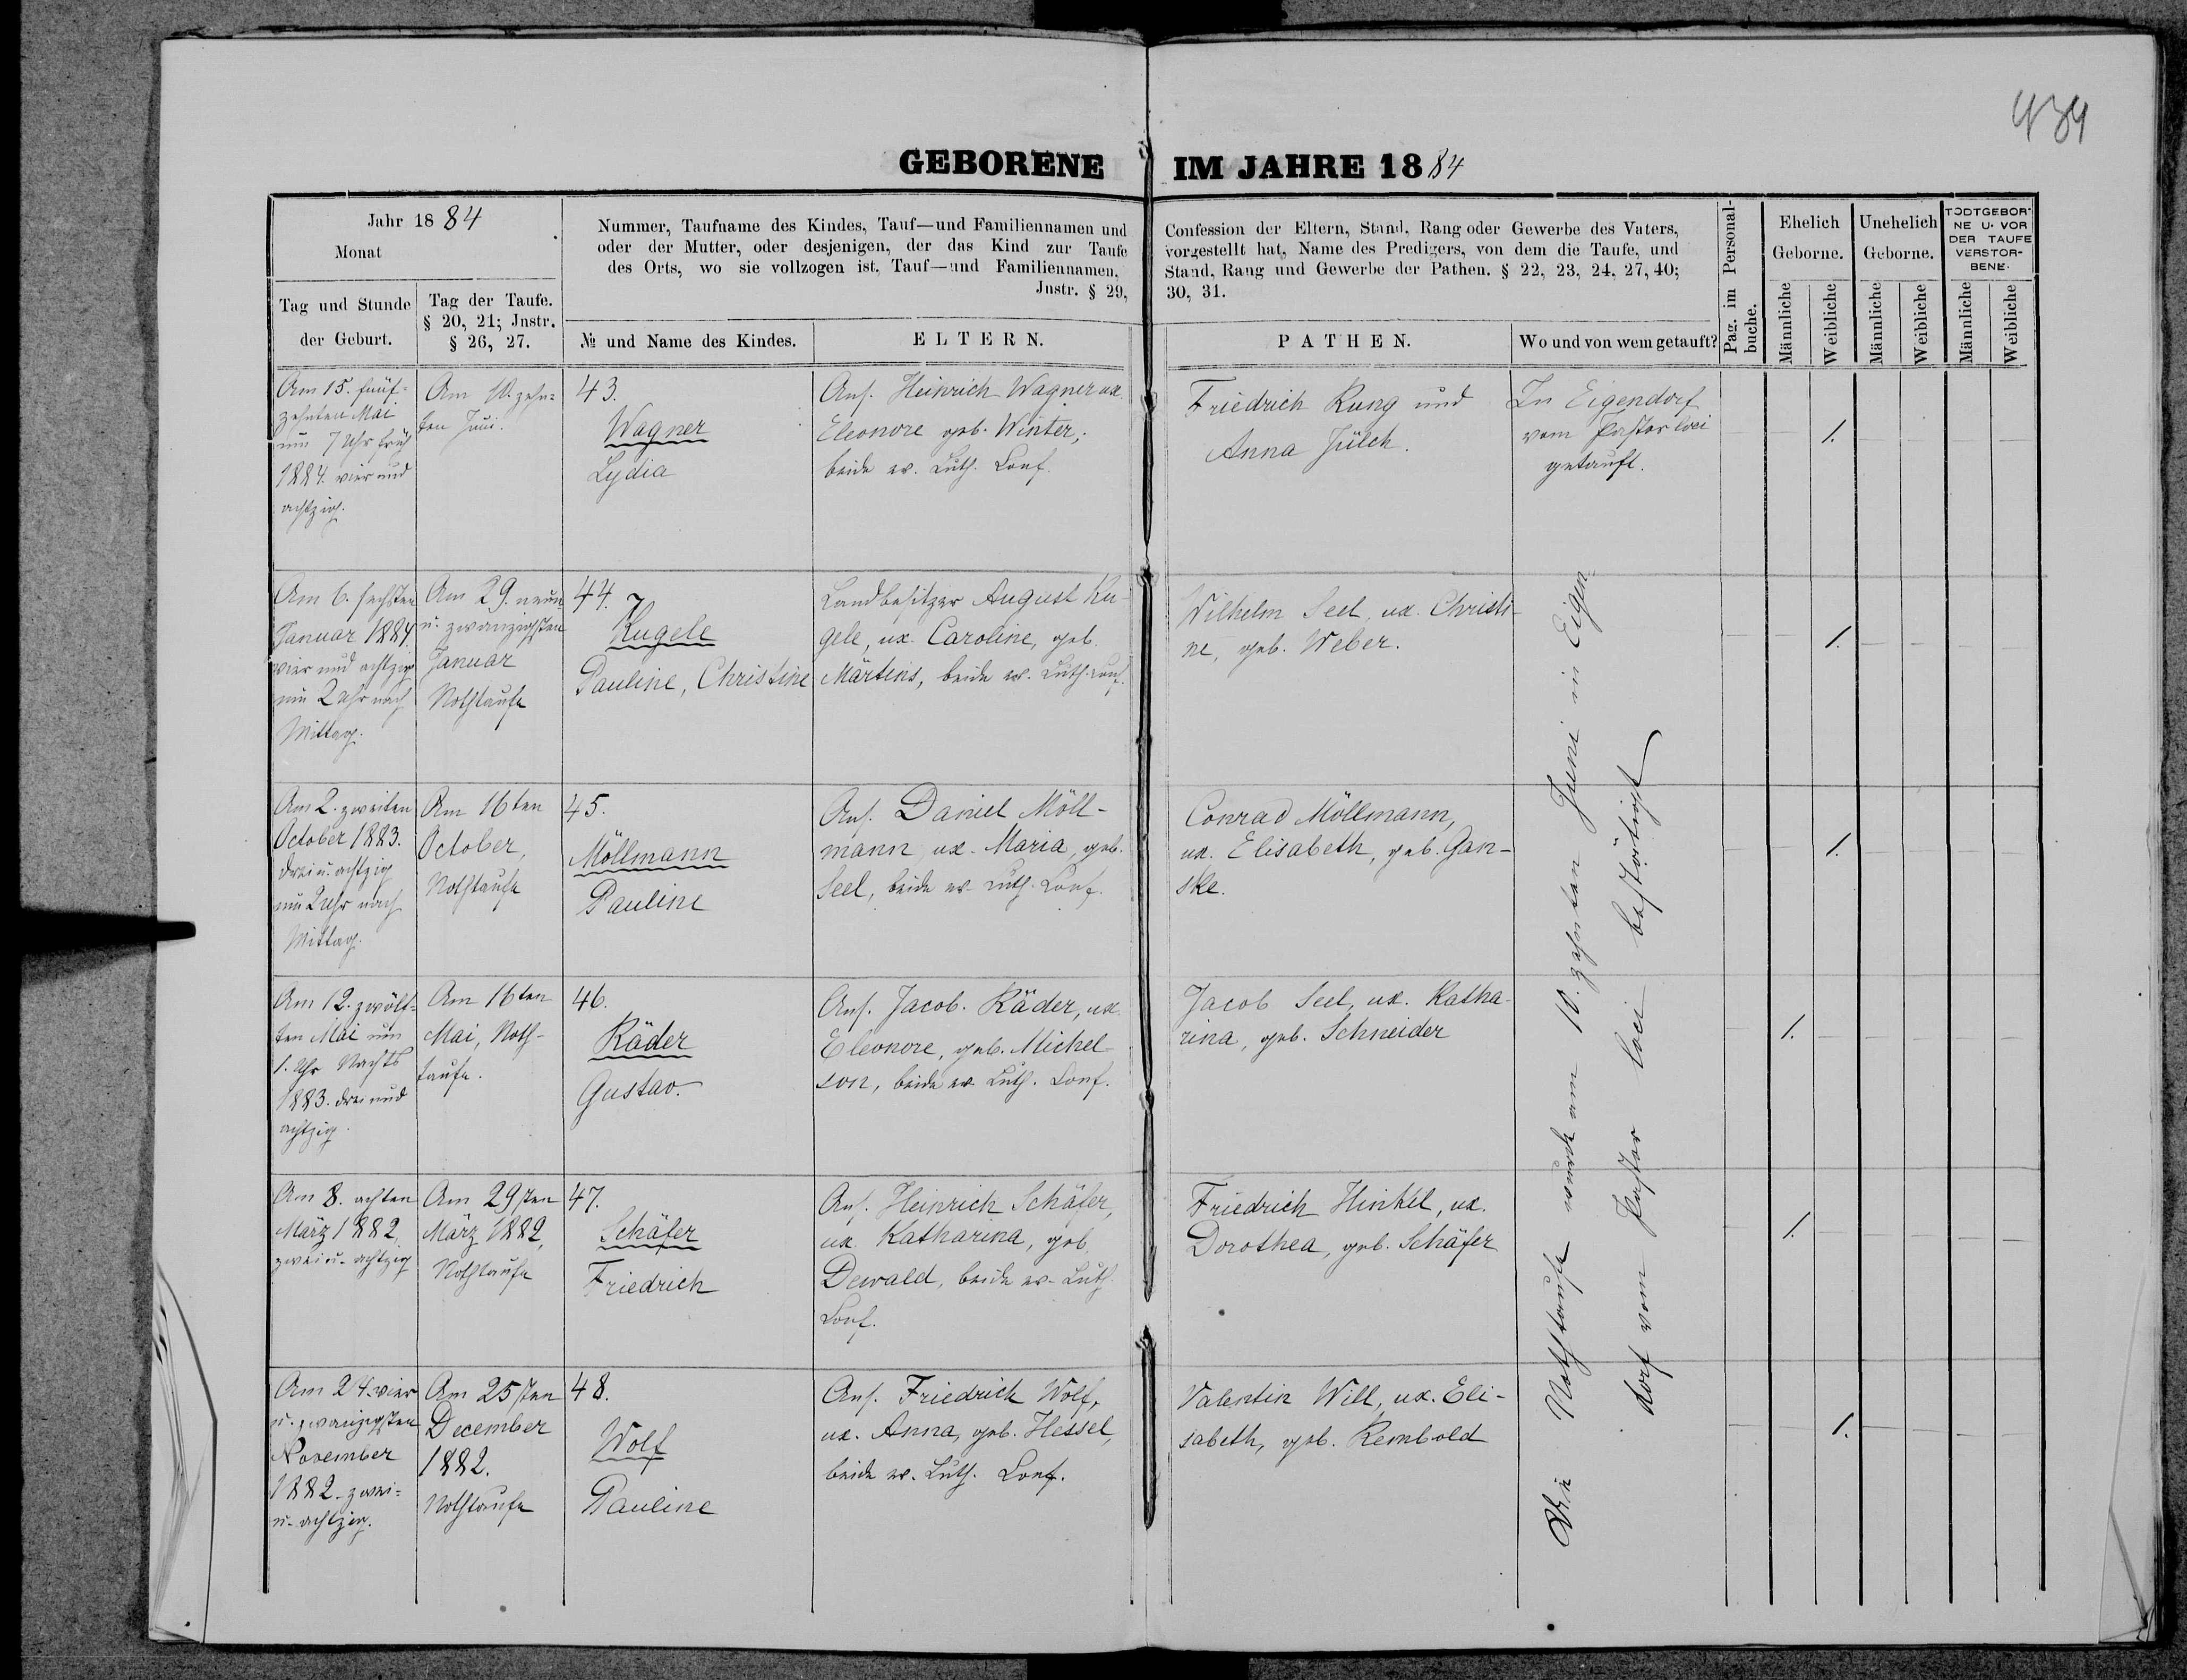 434
GEBORENE IM JAHRE 1884
Jahr 1884
Monat
Tag und Stunde
der Geburt.
Tag der Taufe.
§ 20, 21; Jnstr.
§ 26, 27.
Nummer, Taufname des Kindes, Tauf—und Familiennamen und
oder der Mutter, oder desjenigen, der das Kind zur Taufe
des Orts, wo sie vollzogen ist, Tauf—und Familiennamen,
Jnstr. § 29,
№ und Name des Kindes.
ELTERN.
Confession der Eltern, Stand, Rang oder Gewerbe des Vaters,
vorgestellt hat, Name des Predigers, von dem die Taufe, und
Stand, Rang und Gewerbe der Pathen. § 22, 23, 24, 27, 40;
30, 31.
PATHEN.
Wo und von wem getauft?
Pag. im Personal-
buche.
Ehelich
Geborne.
Unehelich
Geborne.
TODTGEBOR-
NE U. VOR
DER TAUFE
VERSTOR-
BENE.
Männliche
Weibliche
Männliche
Weibliche
Männliche
Weibliche
Am 15. fünf-
zehnten Mai
um 7 Uhr früh
1884. vier und
achtzig.
Am 10. zehn-
ten Juni.
43.
Wagner
Lydia
Ans. Heinrich Wagner ux.
Eleonore geb. Winter,
beide ev. Luth. Conf.
Friedrich Rung und
Anna Jülch.
In Eigendorf
vom Pastor loci
getauft.
1.
Am 6. sechsten
Januar 1884.
vier und achtzig
um 2 Uhr nach
Mittag.
Am 29. neun
u. zwanzigsten
Januar
Nothtaufe
44.
Kugele
Pauline, Christine
Landbesitzer August Ku-
gele, ux. Caroline, geb.
Märtens, beide ev. Luth. Conf.
Wilhelm Seel, ux. Christi-
ne, geb. Weber.
1.
Am 2. zweiten
October 1883.
drei u. achtzig
um 2 Uhr nach
Mittag.
Am 16ten
October,
Nothtaufe
45.
Möllmann
Pauline
Ans. Daniel Möll-
mann ux. Maria, geb.
Seel, beide ev. Luth. Conf.
Conrad Möllmann,
ux. Elisabeth, geb. Gan-
ske.
1.
Am 12. zwölf-
ten Mai um
1. Uhr Nachts
1883. drei und
achtzig.
Am 16ten
Mai, Noth-
taufe.
46.
Räder
Gustav.
Ans. Jacob. Räder, ux.
Eleonore, geb. Michel-
son, beide ev. Luth. Conf.
Jacob Seel, ux. Katha-
rina, geb. Schneider
1.
Am 8. achten
März 1882,
zwei u. achtzig
Am 29sten
März 1882,
Nothtaufe
47.
Schäfer
Friedrich
Ans. Heinrich Schäfer,
ux. Katharina, geb.
Dewald, beide ev. Luth.
Conf.
Friedrich Hinkel, ux.
Dorothea, geb. Schäfer
1.
Am 24. vier
u. zwanzigsten
November
1882. zwei-
u. achtzig.
Am 25sten
December
1882.
Nothtaufe
48.
Wolf
Pauline
Ans. Friedrich Wolf,
ux. Anna, geb. Hessel,
beide ev. Luth. Conf.
Valentin Will, ux. Eli-
sabeth, geb. Rembold
1.
Die Nothtaufe wurde am 10. zehnten Juni in Eigen-
dorf vom Pastor loci bestätigt